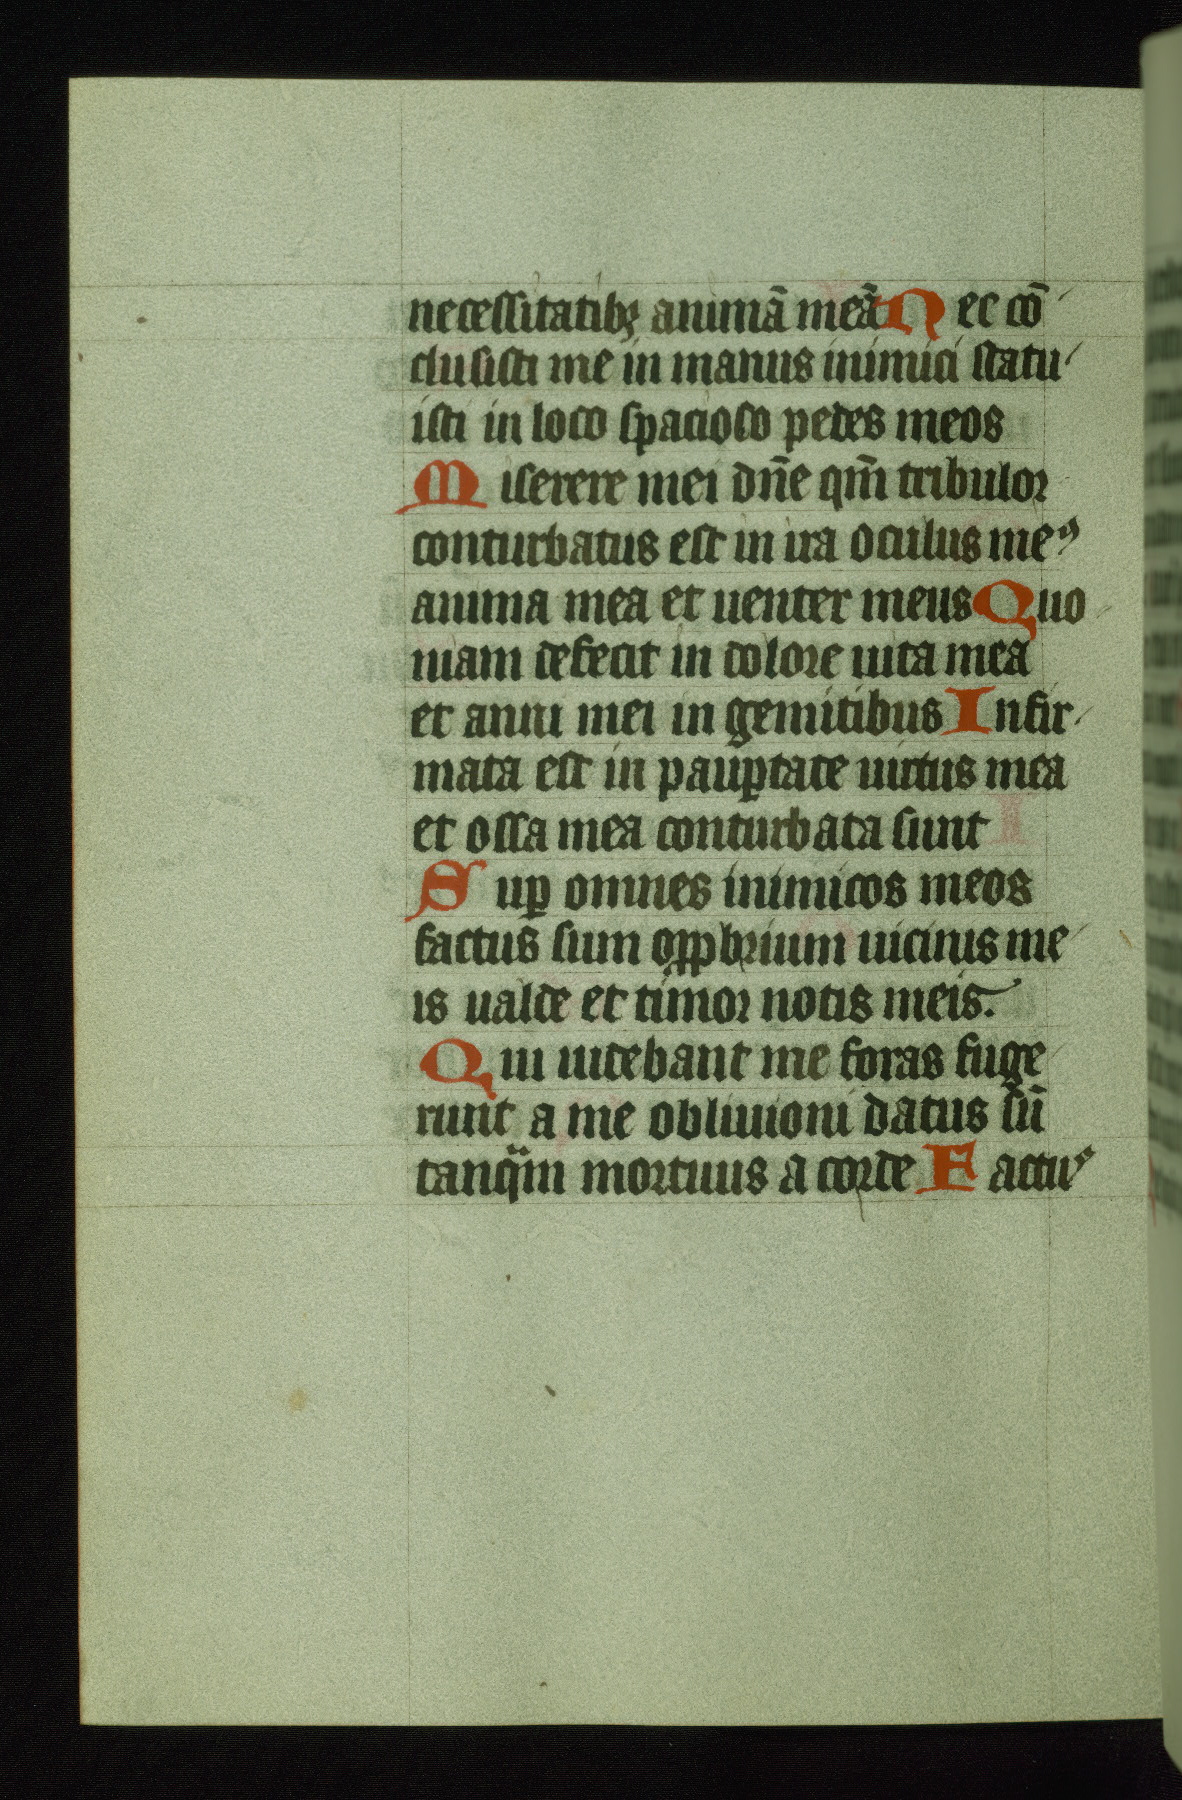 necessitatibꝫ animā meā Nec cō
clusisti me in manus inimici statu
isti in loco spacioso pedes meos
Miserere mei dn̄e qm̄ tribulor
conturbatus est in ira oculus meꝰ
anima mea et uenter meus Quo
niam defecit in dolore uita mea
et anni mei in gemitibus Infir
mata est in pauꝑtate uirtus mea
et ossa mea conturbata sunt
Suꝑ omnes inimicos meos
factus sum opꝓbrium uicinis me
is ualde et timor notis meis.
Qui uidebant me foras fuge
runt a me obliuioni datus sū
tanq̈m mortuus a corde Factuꝰ